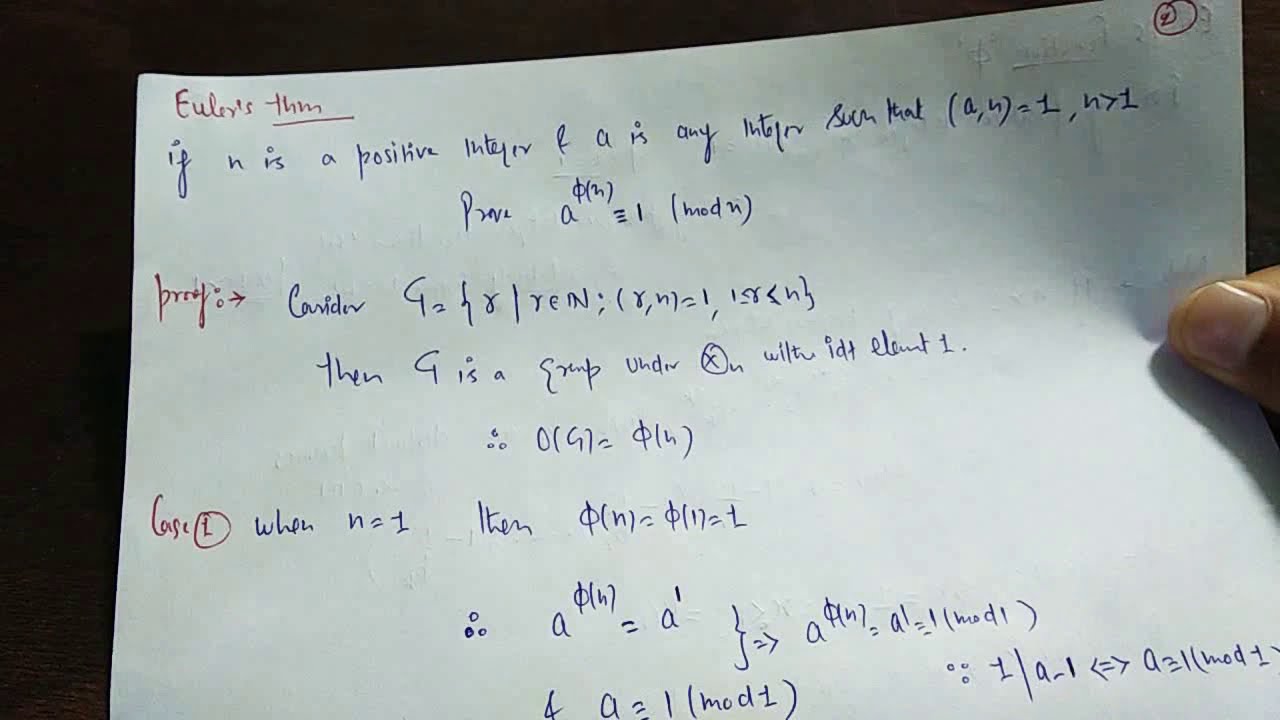 ②
Euler's thm
if n is a positive Integer & a is any Integer such that (a,n)=1, n>1
Prove a^ϕ(n) ≡ 1 (mod n)
proof:→ Consider G = { r | r∈N; (r,n)=1, 1≤r<n}
then G is a group under ⊗n with idt elemt 1.
∴ O(G) = ϕ(n)
Case ① when n=1 then ϕ(n) = ϕ(1) = 1
∴ a^ϕ(n) = a^1 } => a^ϕ(n) = a^1 ≡ 1 (mod 1)
& a ≡ 1 (mod 1)
∵ 1 | a-1 <=> a≡1 (mod 1)